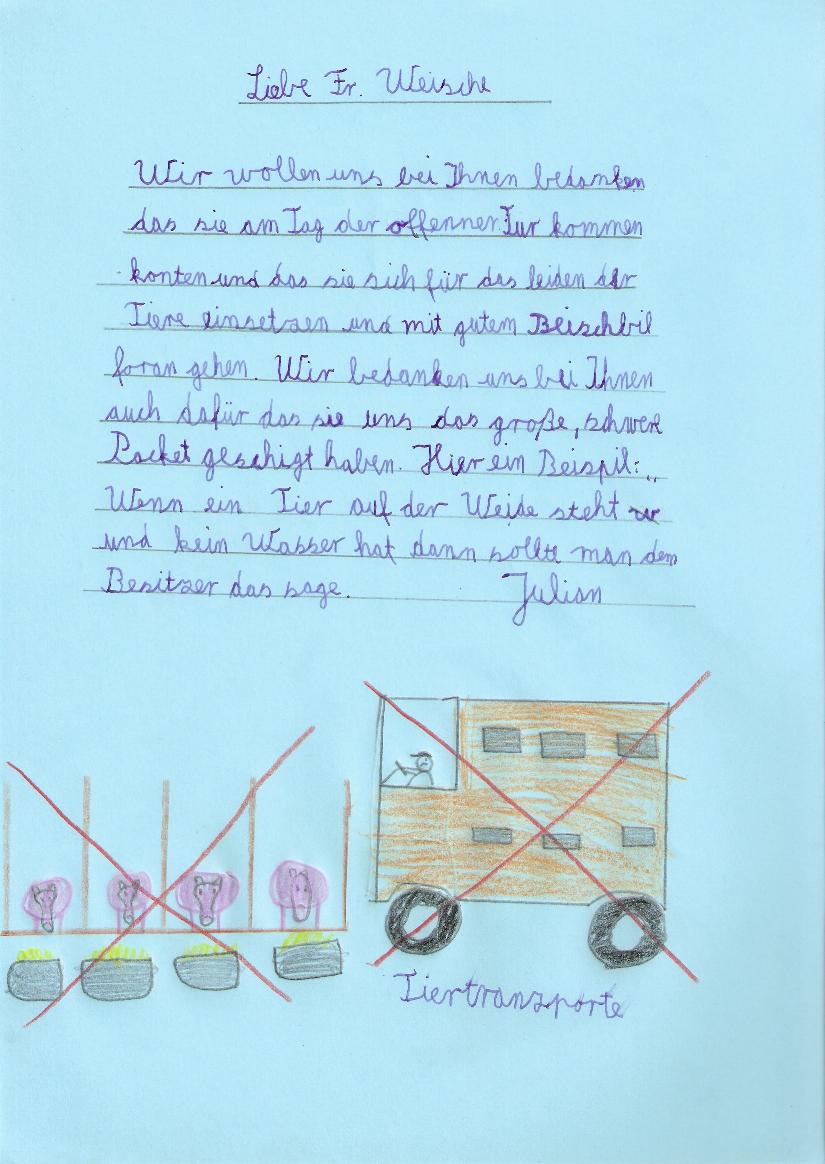 Liebe Fr. Weische
Wir wollen uns bei Ihnen bedanken
das sie am Tag der offennen Tur kommen
konten und das sie sich für das leiden der
Tiere einsetzen und mit gutem Beischbil
foran gehen. Wir bedanken uns bei Ihnen
auch dafür das sie uns das große, schwere
Packet geschigt haben. Hier ein Beispil:„
Wenn ein Tier auf der Weide steht
und kein Wasser hat dann sollte man dem
Besitzer das sage. Julian
Tiertransporte